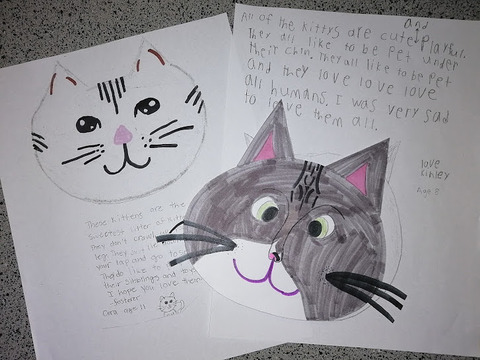 All of the kittys are cute and playful.
They all like to be pet under
their chin. They all like to be pet
and they love love love
all humans. I was very sad
to leave them all.
love
Kinley
Age 9
These kittens are the
sweetest litter of
they don't
leg. They
your lap and go to
They do like to
their siblings and toys
I hope you love them
forever
Cora age 11